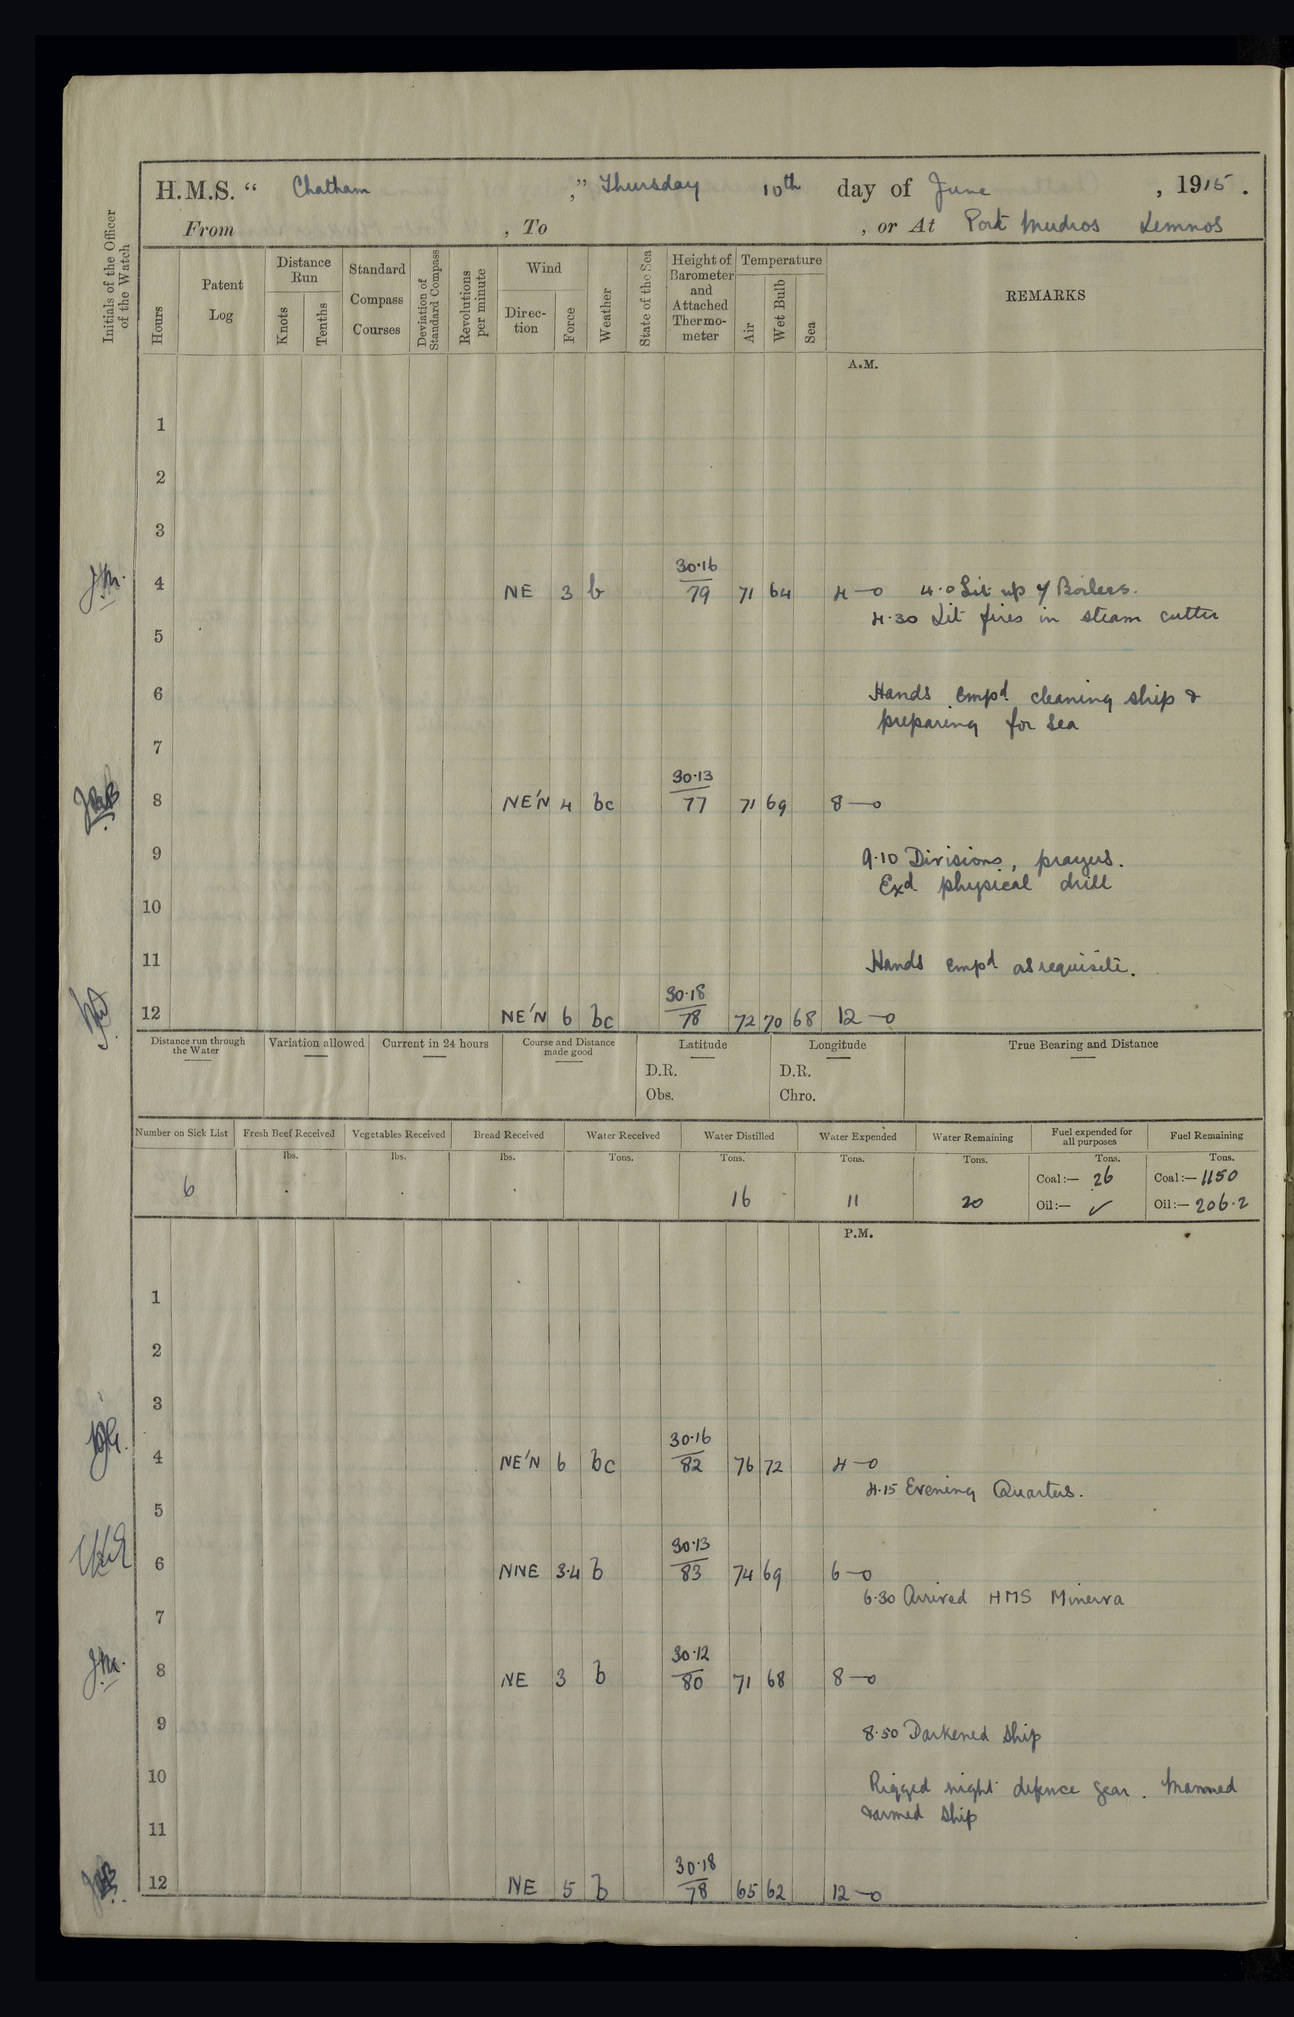 H.M.S. “ Chatham ,” Thursday 10th day of June , 1915.
From , To , or At Port Mudros Lemnos
Initials of the Officer of the Watch
Hours
Patent Log
Distance Run
Knots
Tenths
Standard Compass Courses
Deviation of Standard Compass
Revolutions per minute
Wind
Direction
Force
Weather
State of the Sea
Height of Barometer and Attached Thermometer
Temperature
Air
Wet Bulb
Sea
REMARKS
A.M.
1
2
3
30·16
J.M. 4 NE 3 b 79 71 64 4—0 4·0 Lit up Y Boilers.
4·30 Lit fires in steam cutter
5
6 Hands emp'd cleaning ship &
preparing for sea
7
30·13
8 NE'N 4 bc 77 71 69 8—0
9 9·10 Divisions, prayers.
Exd physical drill
10
11 Hands emp'd as requisite.
30·18
12 NE'N 6 bc 78 72 70 68 12—0
Distance run through the Water
Variation allowed
Current in 24 hours
Course and Distance made good
Latitude
D.R.
Obs.
Longitude
D.R.
Chro.
True Bearing and Distance
Number on Sick List
Fresh Beef Received
Vegetables Received
Bread Received
Water Received
Water Distilled
Water Expended
Water Remaining
Fuel expended for all purposes
Fuel Remaining
lbs. lbs. lbs. Tons. Tons. Tons. Tons. Tons. Tons.
Coal:— 26 Coal:— 1150
6 16 11 20 Oil:— ✓ Oil:— 206·2
P.M.
1
2
3
30·16
4 NE'N 6 bc 82 76 72 4—0
4·15 Evening Quarters.
5
30·13
6 NNE 3·4 b 83 74 69 6—0
6·30 Arrived HMS Minerva
7
30·12
J.M. 8 NE 3 b 80 71 68 8—0
9 8·50 Darkened ship
10 Rigged night defence gear. Manned
& armed ship
11
30·18
12 NE 5 b 78 65 62 12—0